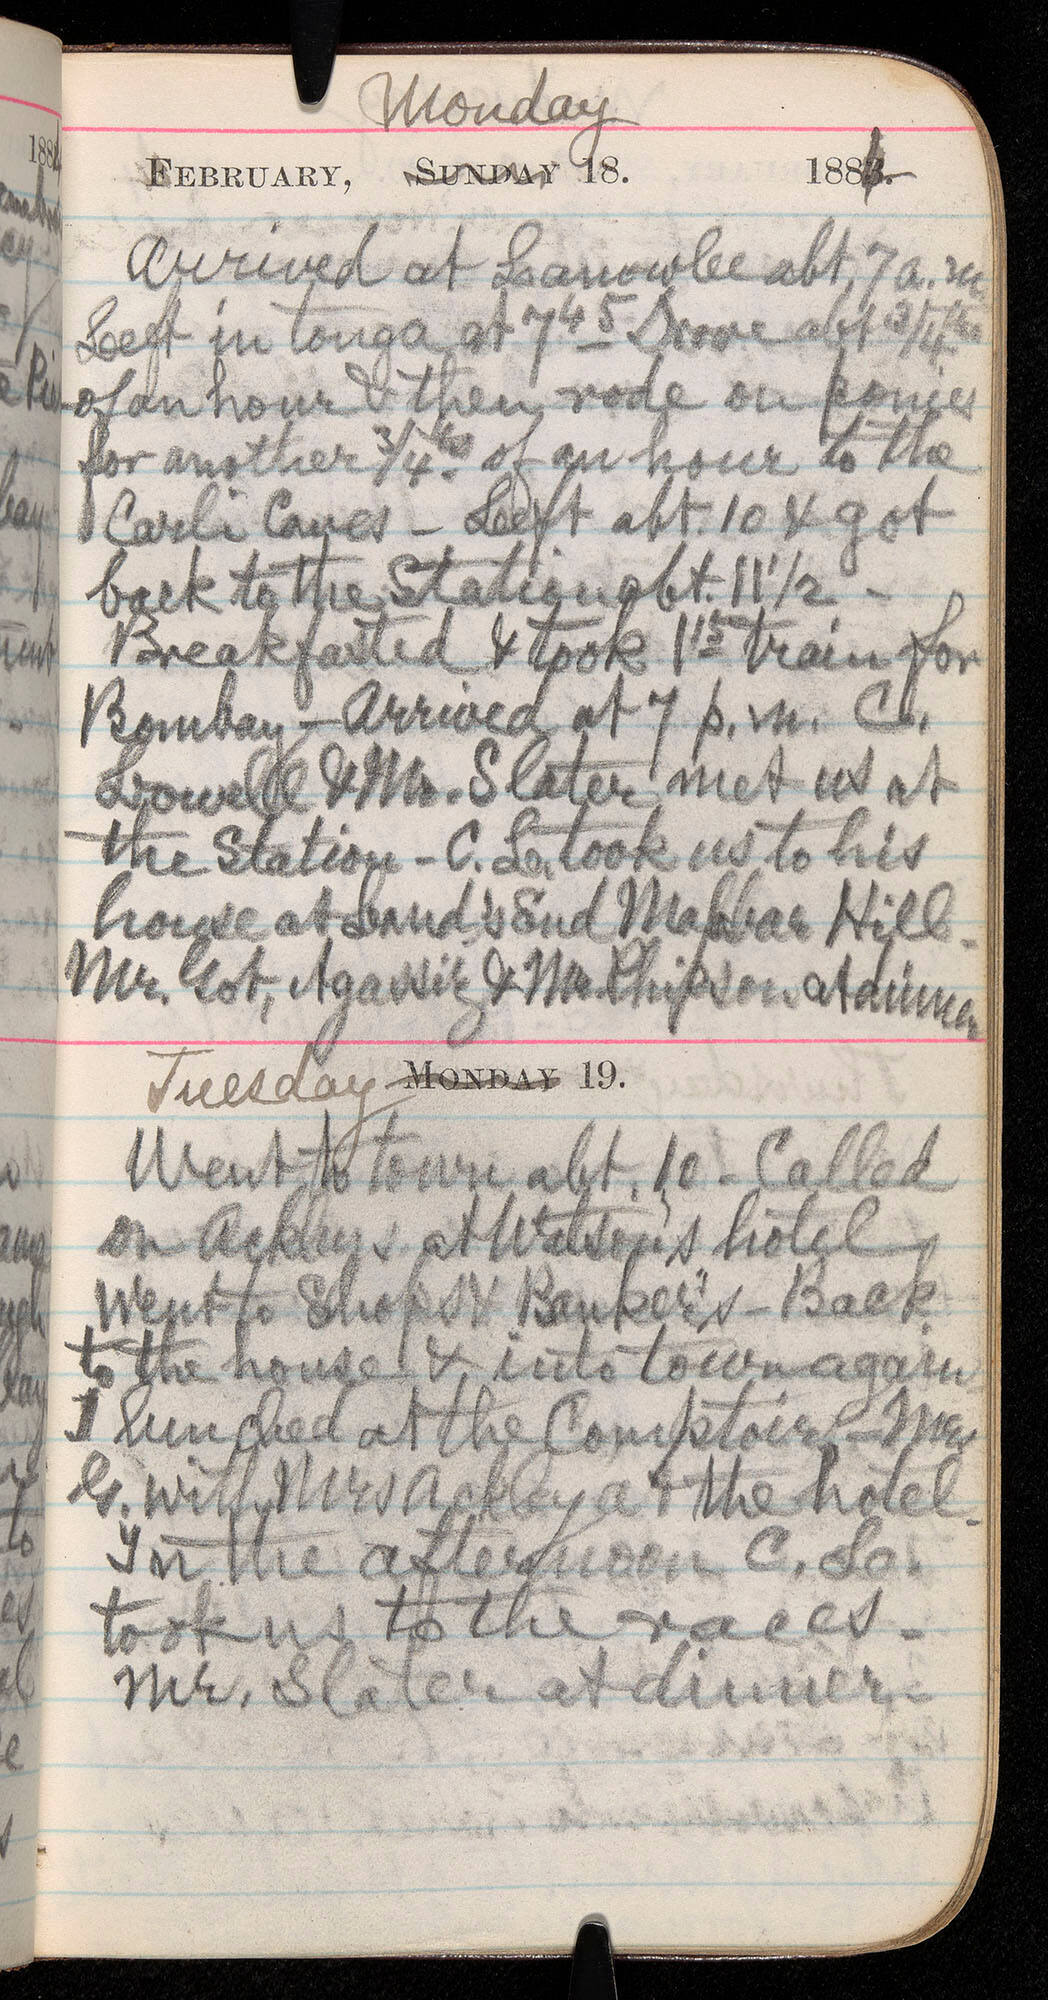 Monday
FEBRUARY, SUNDAY 18. 1884
Arrived at Lanowlee abt. 7 a. m
Left in tonga at 7 45 Drove abt 3/4ths
of an hour & then rode on ponies
for another 3/4ths of an hour to the
Carli Caves - Left abt. 10 & got
back to the Station abt. 11 1/2 -
Breakfasted & took 1 15 train for
Bombay - Arrived at 7 p. m. C.
Lowell & Mr. Slater met us at
the Station - C. L. took us to his
house at Land's End Malabar Hill -
Mr. Agassiz & Mr. Phipson at dinner
Tuesday MONDAY 19.
Went to town abt. 10 - Called
on Ackleys at Watson's hotel
Went to Shops & Banker's - Back
to the house & into town again
I lunched at the Comptoir - Mrs
G. with Mrs Ackley at the hotel -
In the afternoon C. Lo.
took us to the races -
Mr. Slater at dinner -